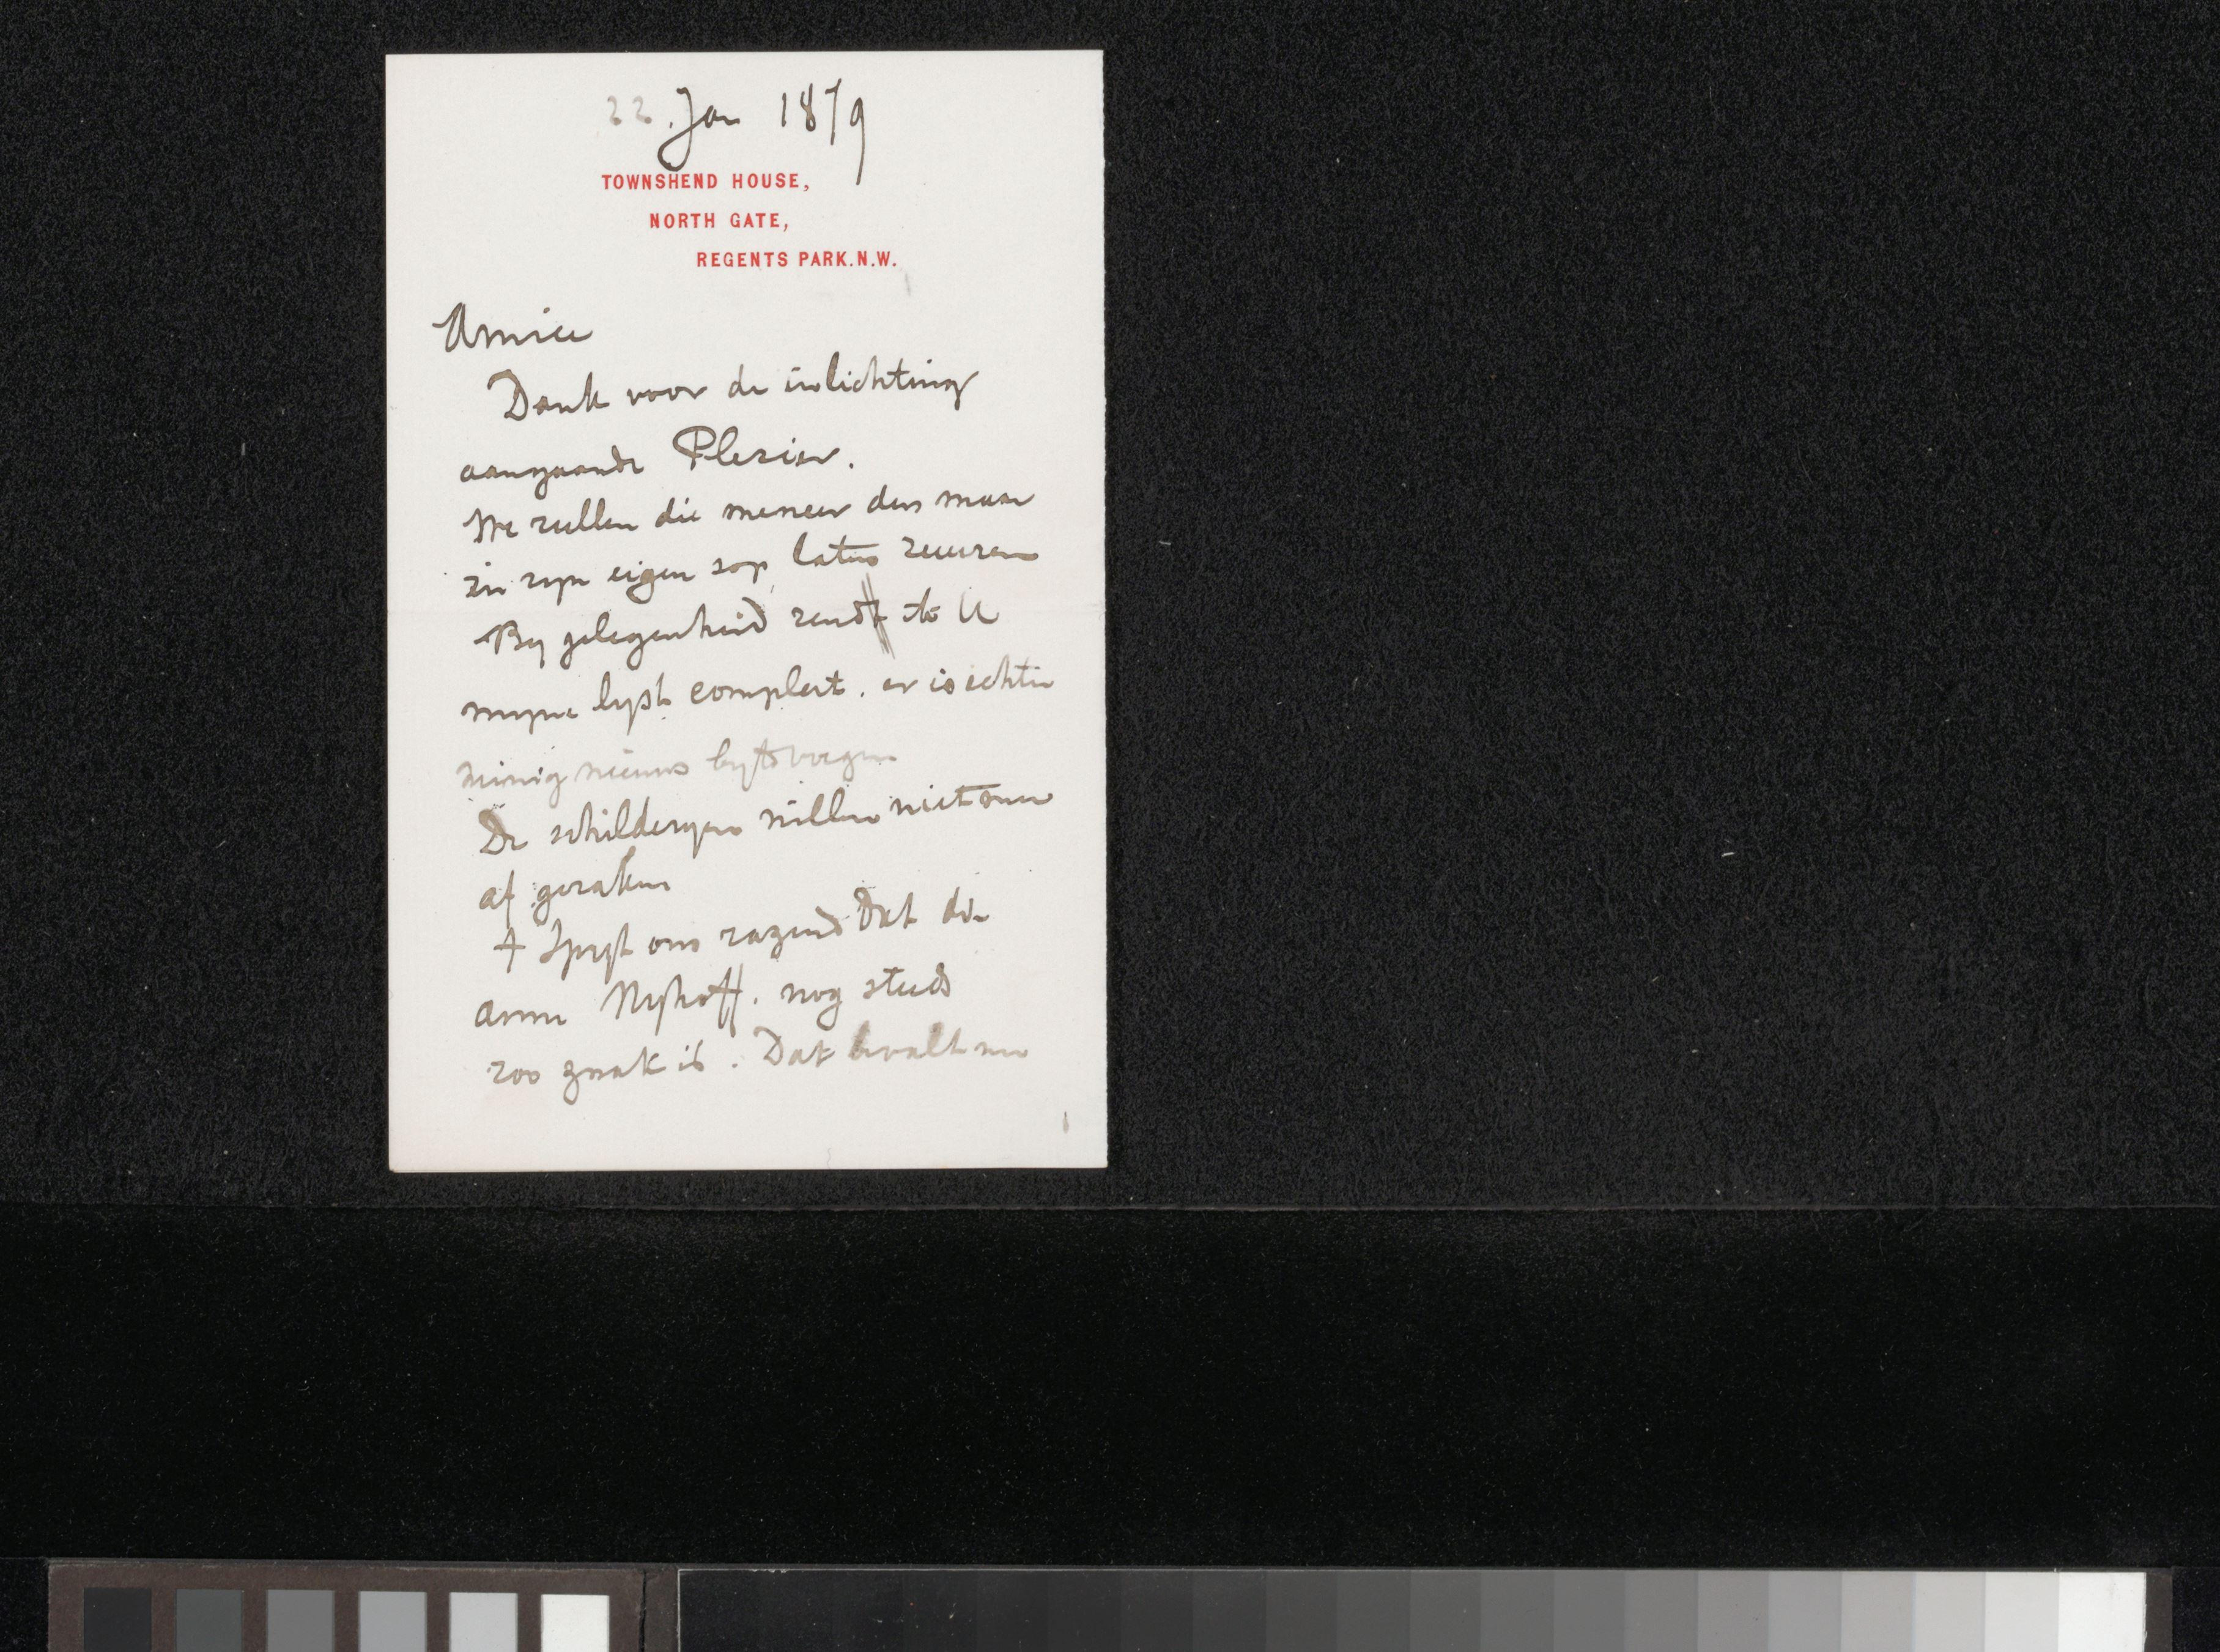 22. Jan 1879
TOWNSHEND HOUSE,
NORTH GATE,
REGENTS PARK.N.W.
Amice
Dank voor de inlichting
aangaande Plezier.
We zullen die meneer dus maar
in zyn eigen sop laten
By gelegenheid zend ik U
myne lyst compleet. er is echter
weinig nieuws by te voegen
De schilderyen willen niet meer
af geraken
t Spyt ons razend dat die
arme Nyhoff. nog steeds
zoo zwak is. Dat bevalt me